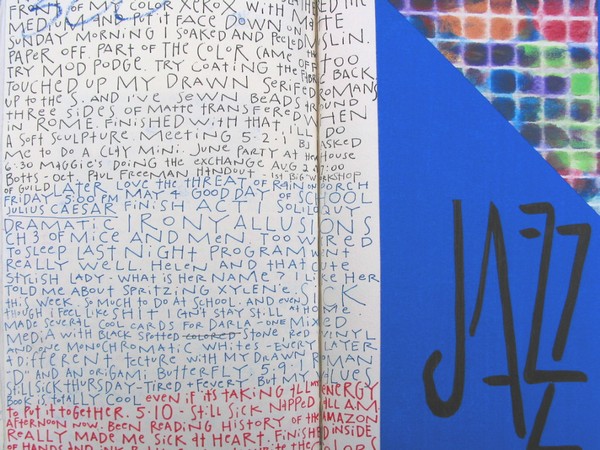 FRONT OF MY COLOR XEROX WITH
MEDIUM AND PUT IT FACE DOWN ON
SUNDAY MORNING I SOAKED AND PEELED MUSLIN.
PAPER OFF. PART OF THE COLOR CAME OFF TOO
TRY MOD PODGE. TRY COATING THE FABRIC BACK.
TOUCHED UP MY DRAWN SERIFED ROMANS
UP TO THE S. AND I'VE SEWN BEADS AROUND
THREE SIDES OF MATTE TRANSFERED WHEN
IN ROME. FINISHED WITH THAT, I'LL DO
A SOFT SCULPTURE. MEETING 5.2. BJ ASKED
ME TO DO A CLAY MINI. JUNE PARTY AT HER HOUSE
6:30 MAGGIE'S DOING THE EXCHANGE AUG 2 7:00
BOTTS - OCT. PAUL FREEMAN HANDOUT - 1ST BIG WORKSHOP
OF GUILD LATER LOVE THE THREAT OF RAIN ON PORCH
FRIDAY 5:00 PM 5 MAY. GOOD DAY OF SCHOOL
JULIUS CAESAR FINISH ACT I SOLILOQUY
DRAMATIC IRONY ALLUSIONS
CH 3 OF MICE AND MEN. TOO WIRED
TO SLEEP LAST NIGHT PROGRAM WENT
REALLY WELL. HELEN AND THAT CUTE
STYLISH LADY - WHAT IS HER NAME? I LIKE HER
TOLD ME ABOUT SPRITZING XYLENE. SICK
THIS WEEK. SO MUCH TO DO AT SCHOOL. AND EVEN
THOUGH I FEEL LIKE SHIT I CAN'T STAY STILL AT HOME
MADE SEVERAL COOL CARDS FOR DARLA - ONE MIXED
MEDIA WITH BLACK SPOTTED COLORED STONE RED VINYL
AND ONE MONOCHROMATIC WHITES - EVERY LAYER
A DIFFERENT TEXTURE WITH MY DRAWN ROMAN
"D" AND AN ORIGAMI BUTTERFLY. 5.9.1 VALUES
STILL SICK THURSDAY - TIRED + FEVERY. BUT MY
BOOK IS TOTALLY COOL EVEN IF IT'S TAKING ALL MY ENERGY
TO PUT IT TOGETHER. 5.10 - STILL SICK NAPPED ALL AM.
AFTERNOON NOW. BEEN READING HISTORY OF THE AMAZON
REALLY MADE ME SICK AT HEART. FINISHED INSIDE
OF HANDS AND INK
JAZZ